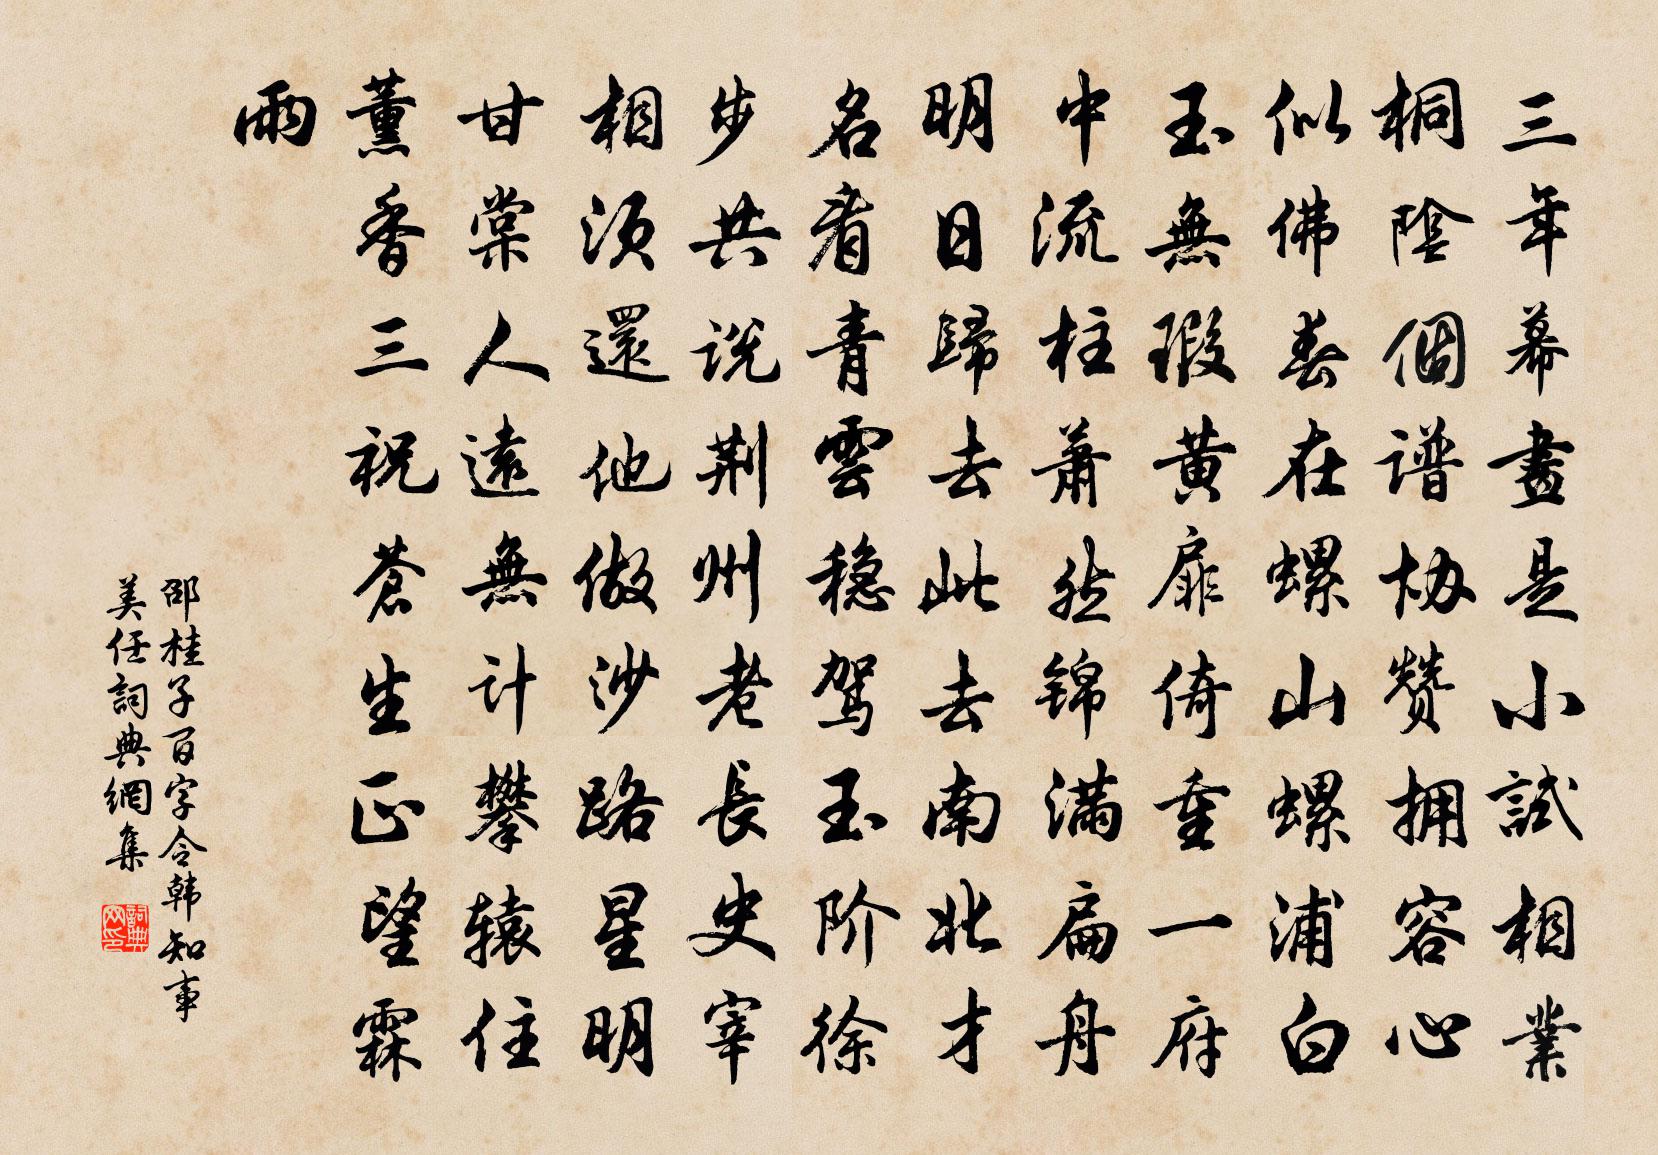 三年幕畫是小試相業
桐陰個谱协赞拥容心
似佛春在螺山螺浦白
玉無瑕黄扉倚重一府
中流柱萧然锦满扁舟
明日歸去此去南北才
名看青雲稳驾玉阶徐
步共说荆州老長史宰
相须還他做沙路星明
甘棠人遠無计攀辕住
薰香三祝蒼生正望霖
雨
邵桂子百字令韩知事
美任詞典網集
詞典网印